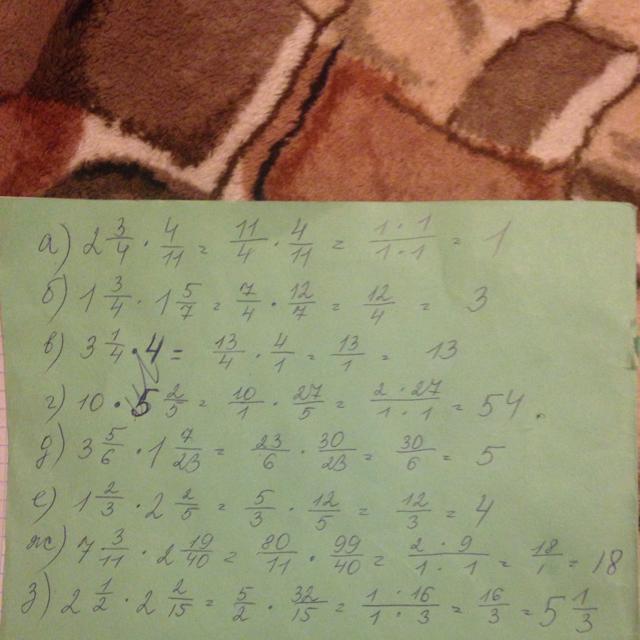 а) 2 3/4 · 4/11 = 11/4 · 4/11 = 1 · 1/1 · 1 = 1
б) 1 3/4 · 1 5/7 = 7/4 · 12/7 = 12/4 = 3
в) 3 1/4 · 4 = 13/4 · 4/1 = 13/1 = 13
г) 10 · 5 2/5 = 10/1 · 27/5 = 2 · 27/1 · 1 = 54.
д) 3 5/6 · 1 7/23 = 23/6 · 30/23 = 30/6 = 5
е) 1 2/3 · 2 2/5 = 5/3 · 12/5 = 12/3 = 4
ж) 7 3/11 · 2 19/40 = 80/11 · 99/40 = 2 · 9/1 · 1 = 18/1 = 18
з) 2 1/2 · 2 2/15 = 5/2 · 32/15 = 1 · 16/1 · 3 = 16/3 = 5 1/3